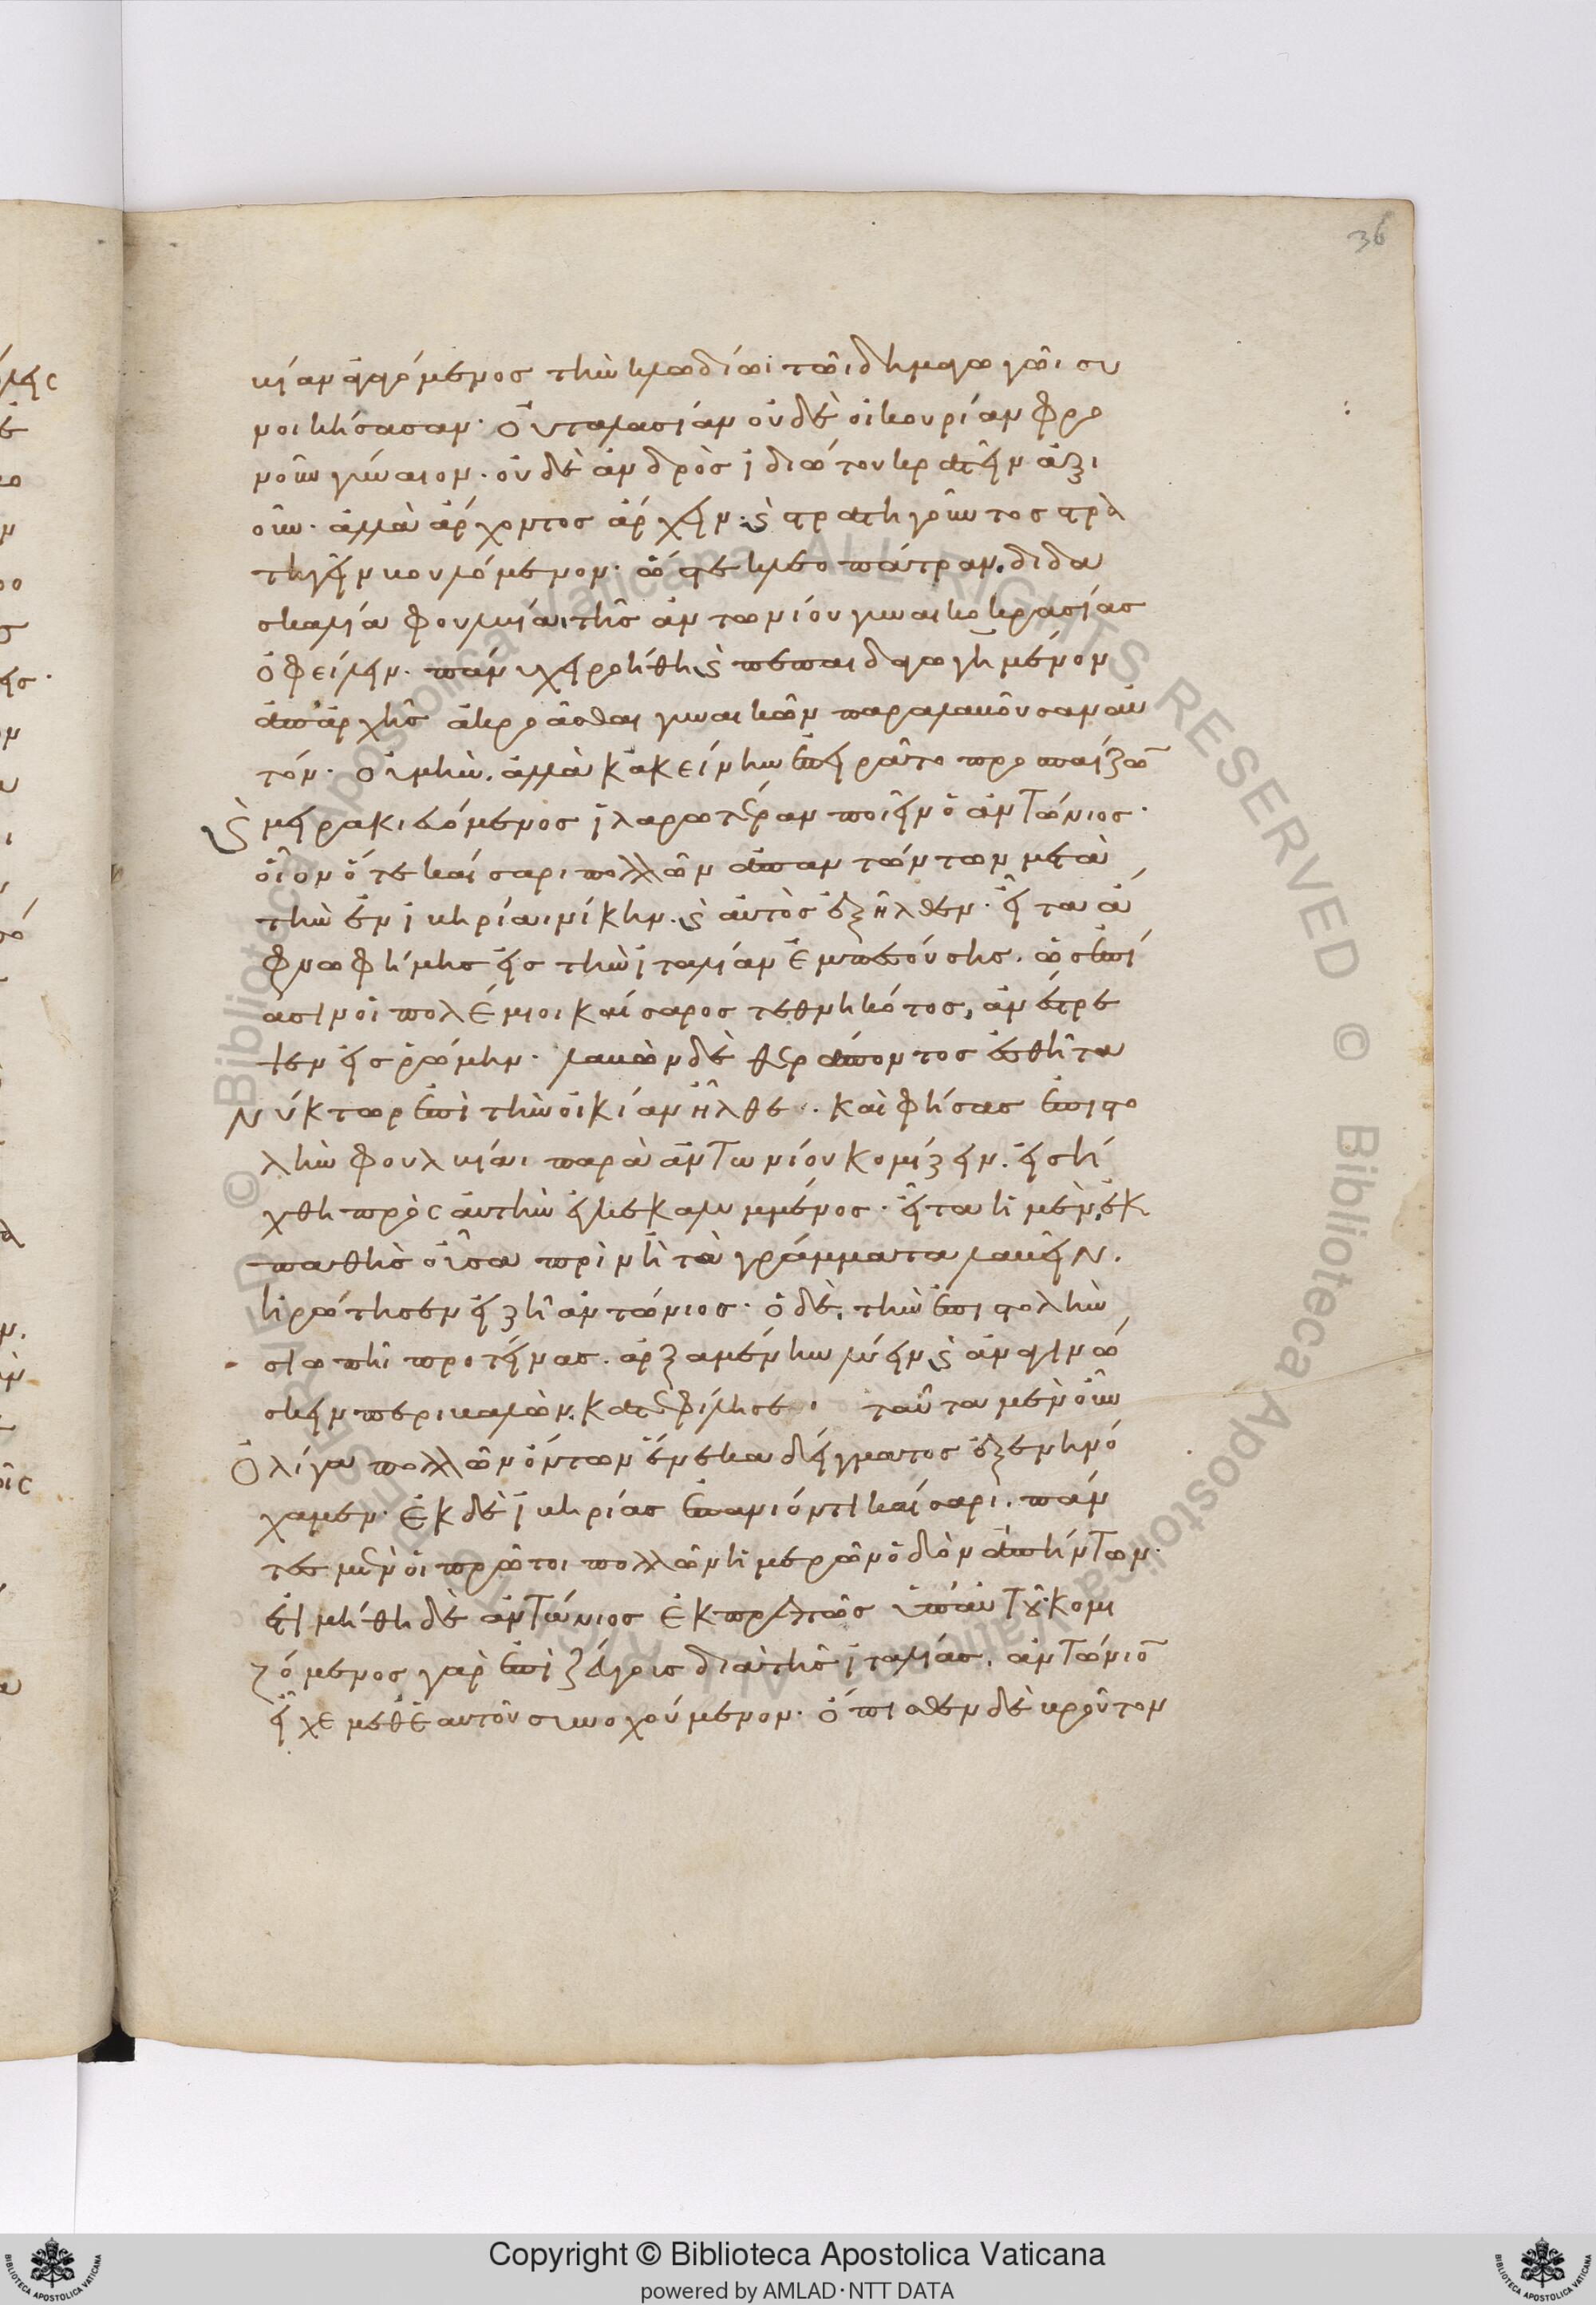 36
βίαν ἀγόμενος τὴν κλωδίωι τῶι δημαγωγῶι συ
νοικήσασαν· οὐ ταλασίαν οὐδὲ οἰκουρίαν φρο
νοῦν γύναιον· οὐδὲ ἀνδρὸς ἰδιώτου κρατεῖν ἀξι
οῦν· ἀλλὰ ἄρχοντος ἄρχειν· ϗ στρατηγοῦντος στρα
τηγεῖν βουλόμενον· ὥστε κλεοπάτραν, διδα
σκαλία φουλβίαι τῆς ἀντωνίου γυναικοκρασίας
ὀφείλειν· πάνυ χειροήθη ϗ πεπαιδαγωγημένον
ἀπαρχῆς ἀκροᾶσθαι γυναικῶν παραλαβοῦσαν αὐ
τόν· οὐ μὴν, ἀλλὰ κἀκείνην ἐπειρᾶτο προσπαίζων
ϗ μειρακιευόμενος ἱλαρωτέραν ποιεῖν ὁ ἀντώνιος·
οἷον ὅτε καίσαρι πολλῶν ἀπαντώντων μετὰ
τὴν ἐν ἰβηρίαι νίκην, ϗ αὐτὸς ἐξῆλθεν· εἶτα ἄ
φνω φήμης εἰς τὴν ἰταλίαν ἐμπεσούσης, ὡς ἐπί
ασιν οἱ πολέμιοι καίσαρος τεθνηκότος, ἀνέστρε
ψεν εἰς ῥώμην· λαβὼν δὲ θεράποντος ἐσθῆτα
νύκτωρ ἐπὶ τὴν οἰκίαν ἦλθε· καὶ φήσας ἐπιστο
λὴν φουλβίαι παρὰ ἀντωνίου κομίζειν, εἰσή
χθη πρὸς αὐτὴν ἐγκεκαλυμμένος· εἶτα ἡ μὲν, ἐκ
παθὴς οὖσα πρὶν ἢ τὰ γράμματα λαβεῖν,
ἠρώτησεν εἰ ζῆ ἀντώνιος· ὁ δὲ, τὴν ἐπιστολὴν
σιωπῆι προτείνας, ἀρξαμένην λύειν ϗ ἀναγινώ
σκειν περιβαλὼν, κατεφίλησε· ταῦτα μὲν οὖν
ὀλίγα πολλῶν ὄντων ἕνεκα δείγματος ἐξενηνό
χαμεν· ἐκ δὲ ἰβηρίας ἐπανιόντι καίσαρι, πάν
τες μὲν οἱ πρῶτοι πολλῶν ἡμερῶν ὁδὸν ἀπήντων·
ἐτιμήθη δὲ ἀντώνιος ἐκπρεπῶς ὑπ' αὐτοῦ· κομι
ζόμενος γὰρ ἐπὶ ζεύγους διὰ τῆς ἰταλίας, ἀντώνιον
εἶχε μεθ' ἑαυτοῦ συνοχούμενον· ὄπισθεν δὲ βροῦτον
Copyright © Biblioteca Apostolica Vaticana
powered by AMLAD·NTT DATA